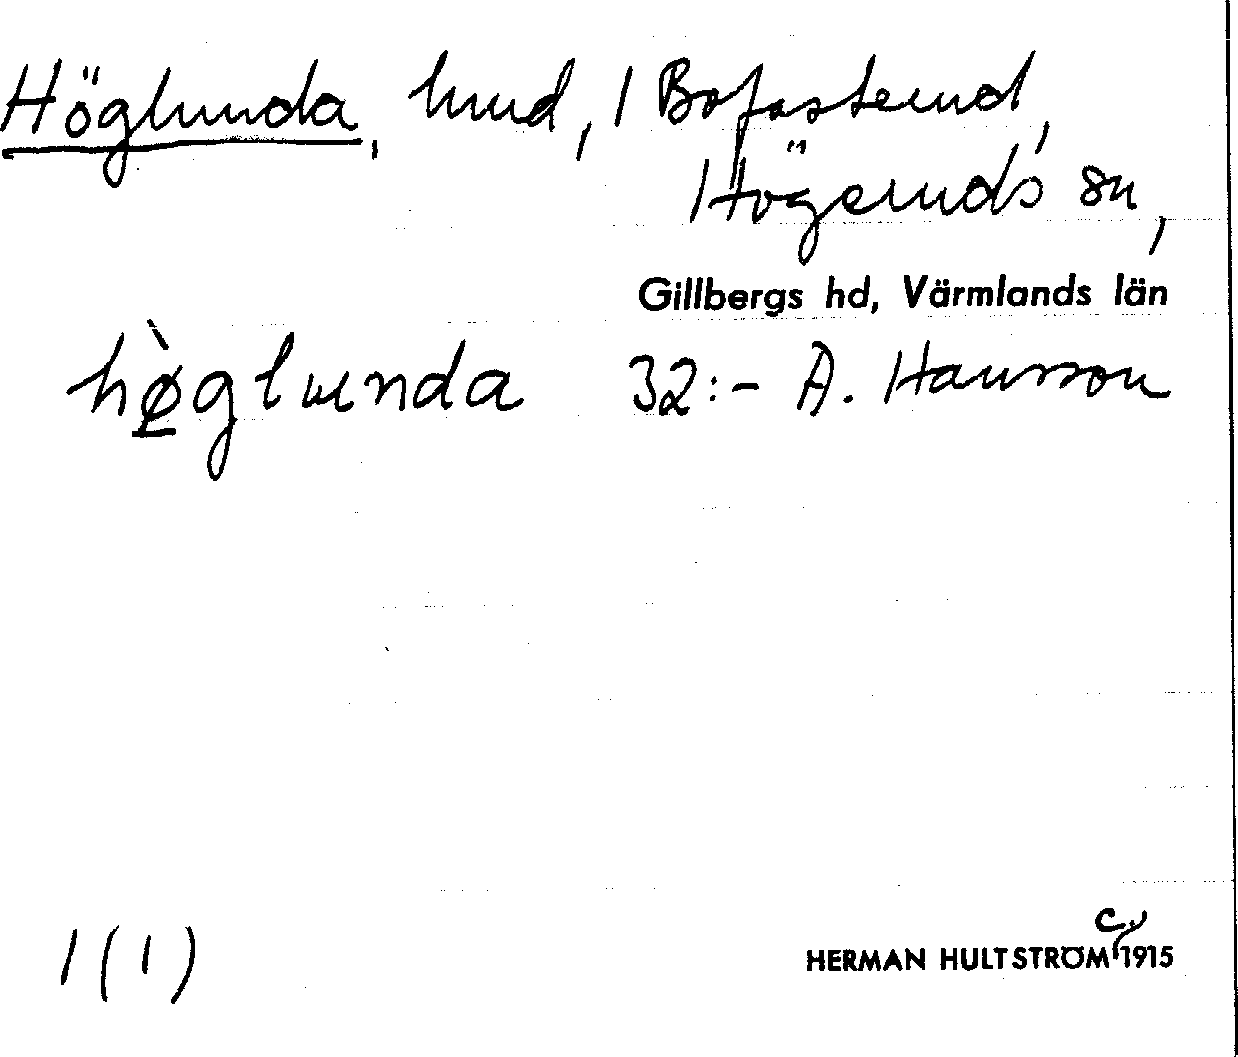 Höglunda, lund, 1 Bofasterud,
Högeruds sn,
Gillbergs hd, Värmlands län
hø̀glunda 32:- A. Hansson
1 (1)
HERMAN HULTSTRÖM c. 1915